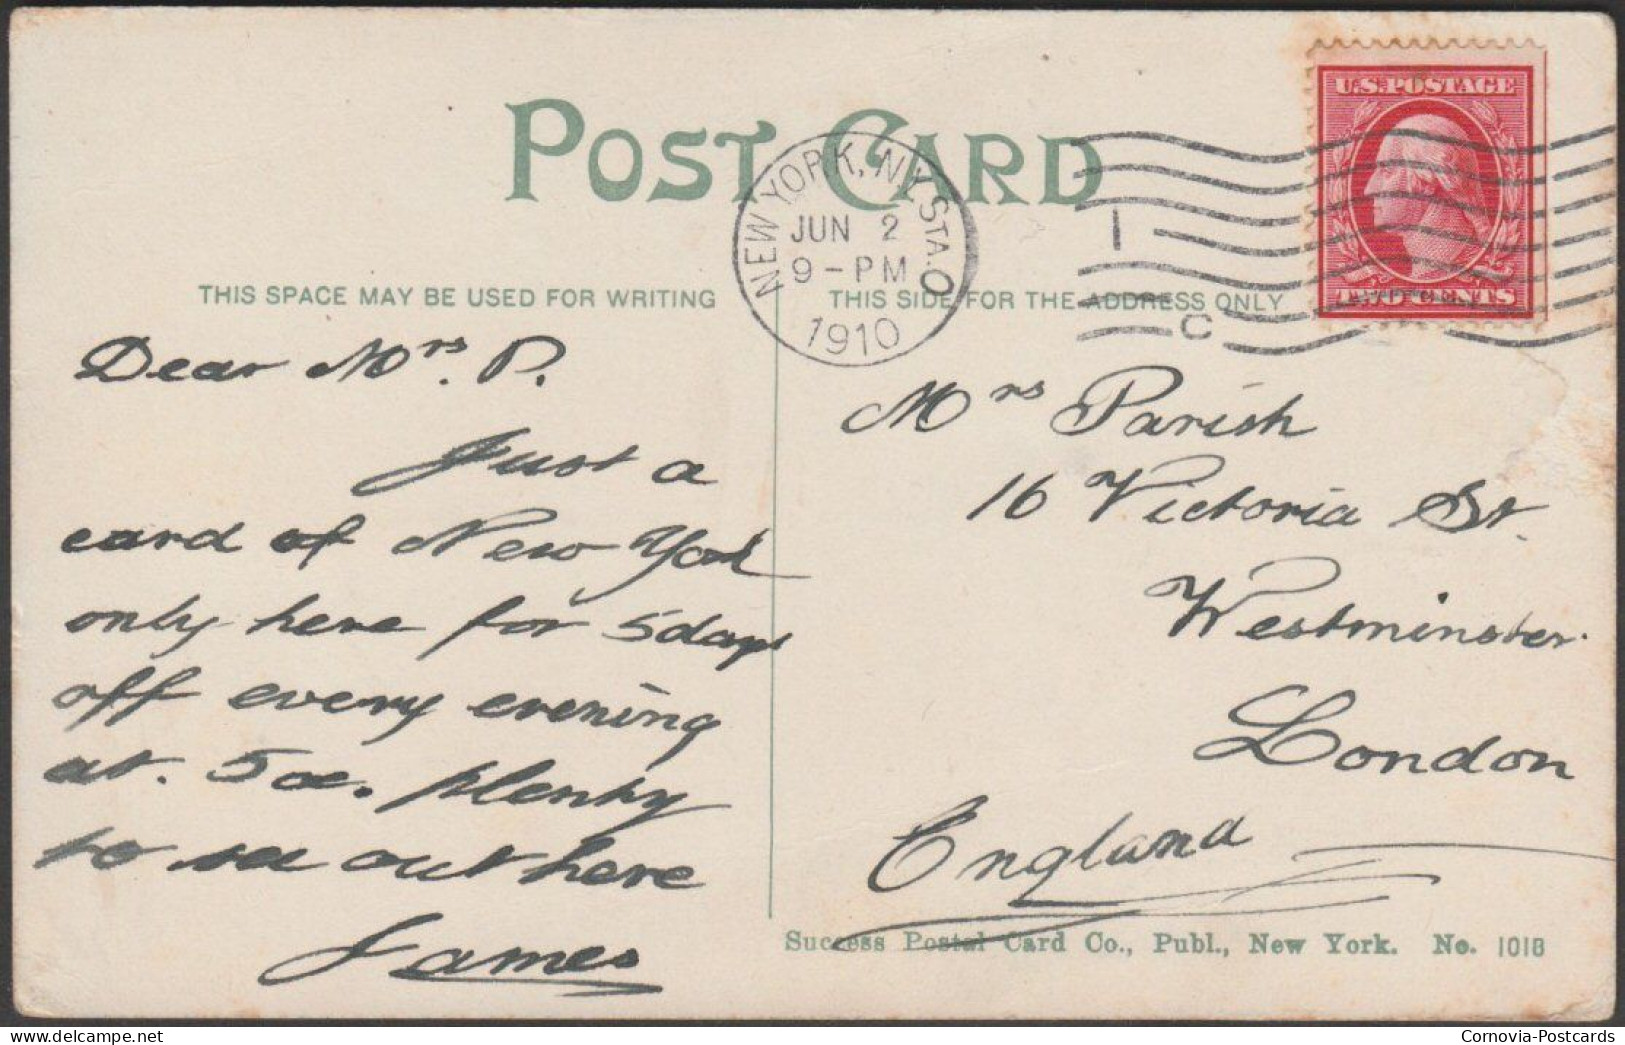 POST CARD
U.S. POSTAGE
TWO CENTS
NEW YORK, N.Y. STA. O
JUN 2
9-PM
1910
1
C
THIS SPACE MAY BE USED FOR WRITING
THIS SIDE FOR THE ADDRESS ONLY
Dear Mrs. P.
Just a
card of New York
only here for 5 days
off every evening
at. 5 plenty
to see out here
James
Mrs Parish
16 Victoria St.
Westminster.
London
England
Success Postal Card Co., Publ., New York. No. 1018
delcampe.net
Cornovia-Postcards